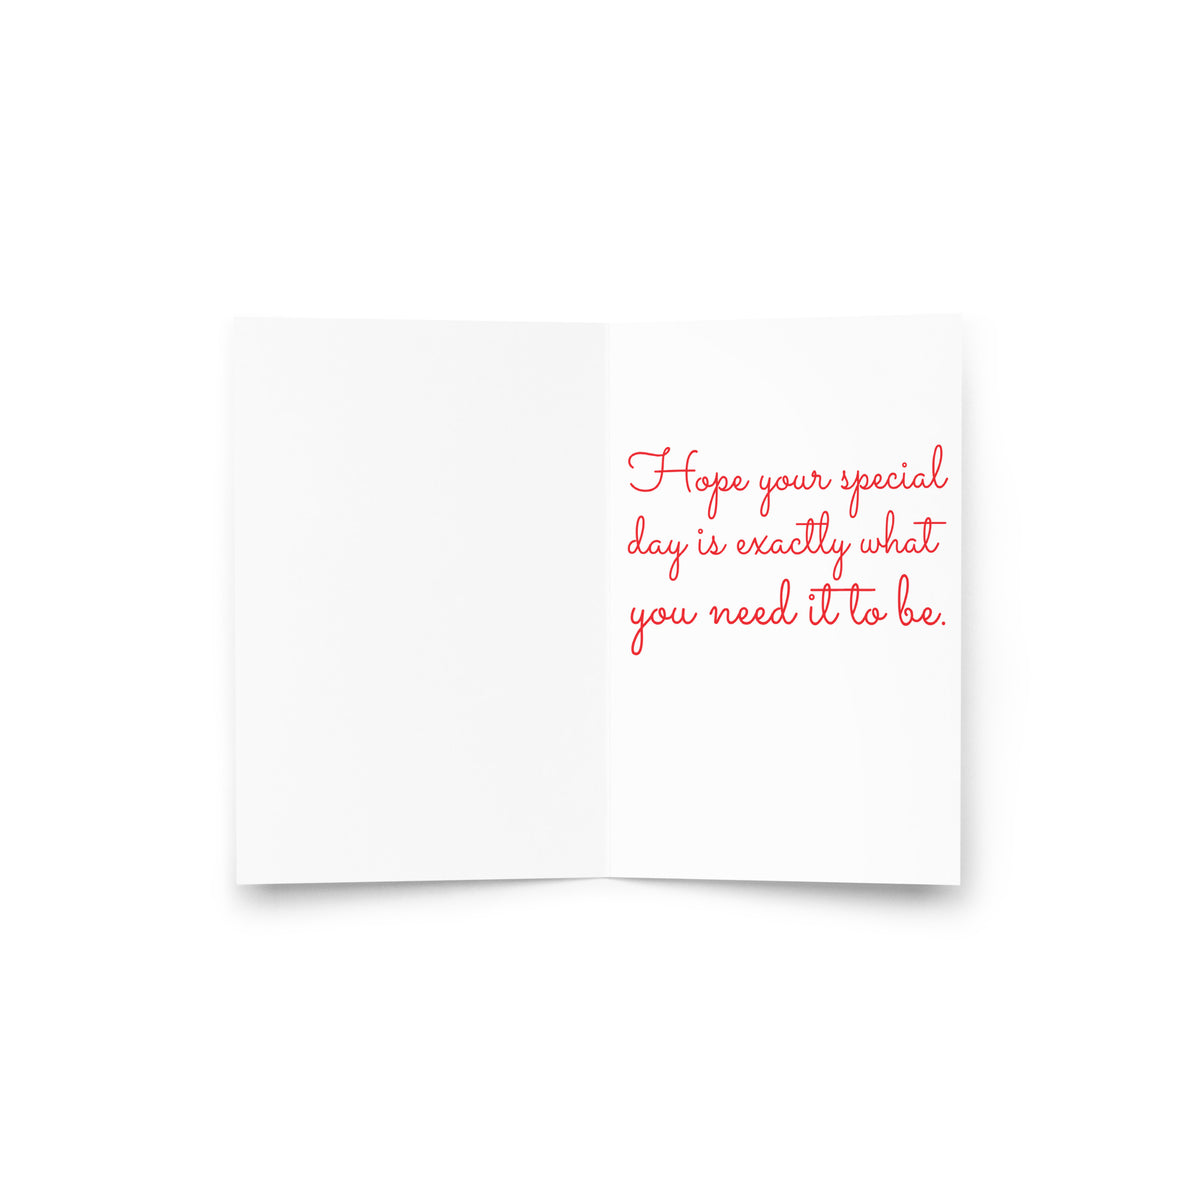 Hope your special
day is exactly what
you need it to be.